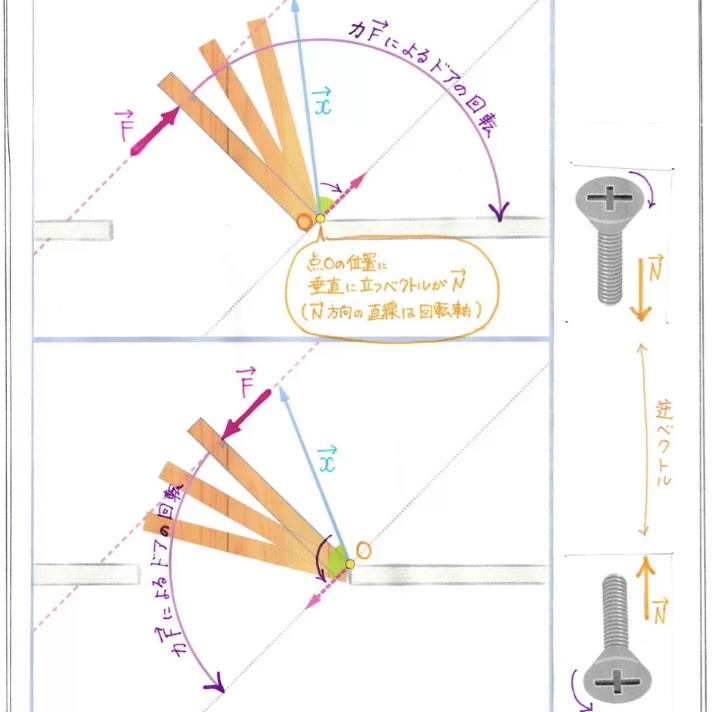 力F→によるドアの回転
F→
x→
O
点Oの位置に
垂直に立つベクトルがN→
(N→方向の直線は回転軸)
N→
逆ベクトル
F→
x→
O
力F→によるドアの回転
N→